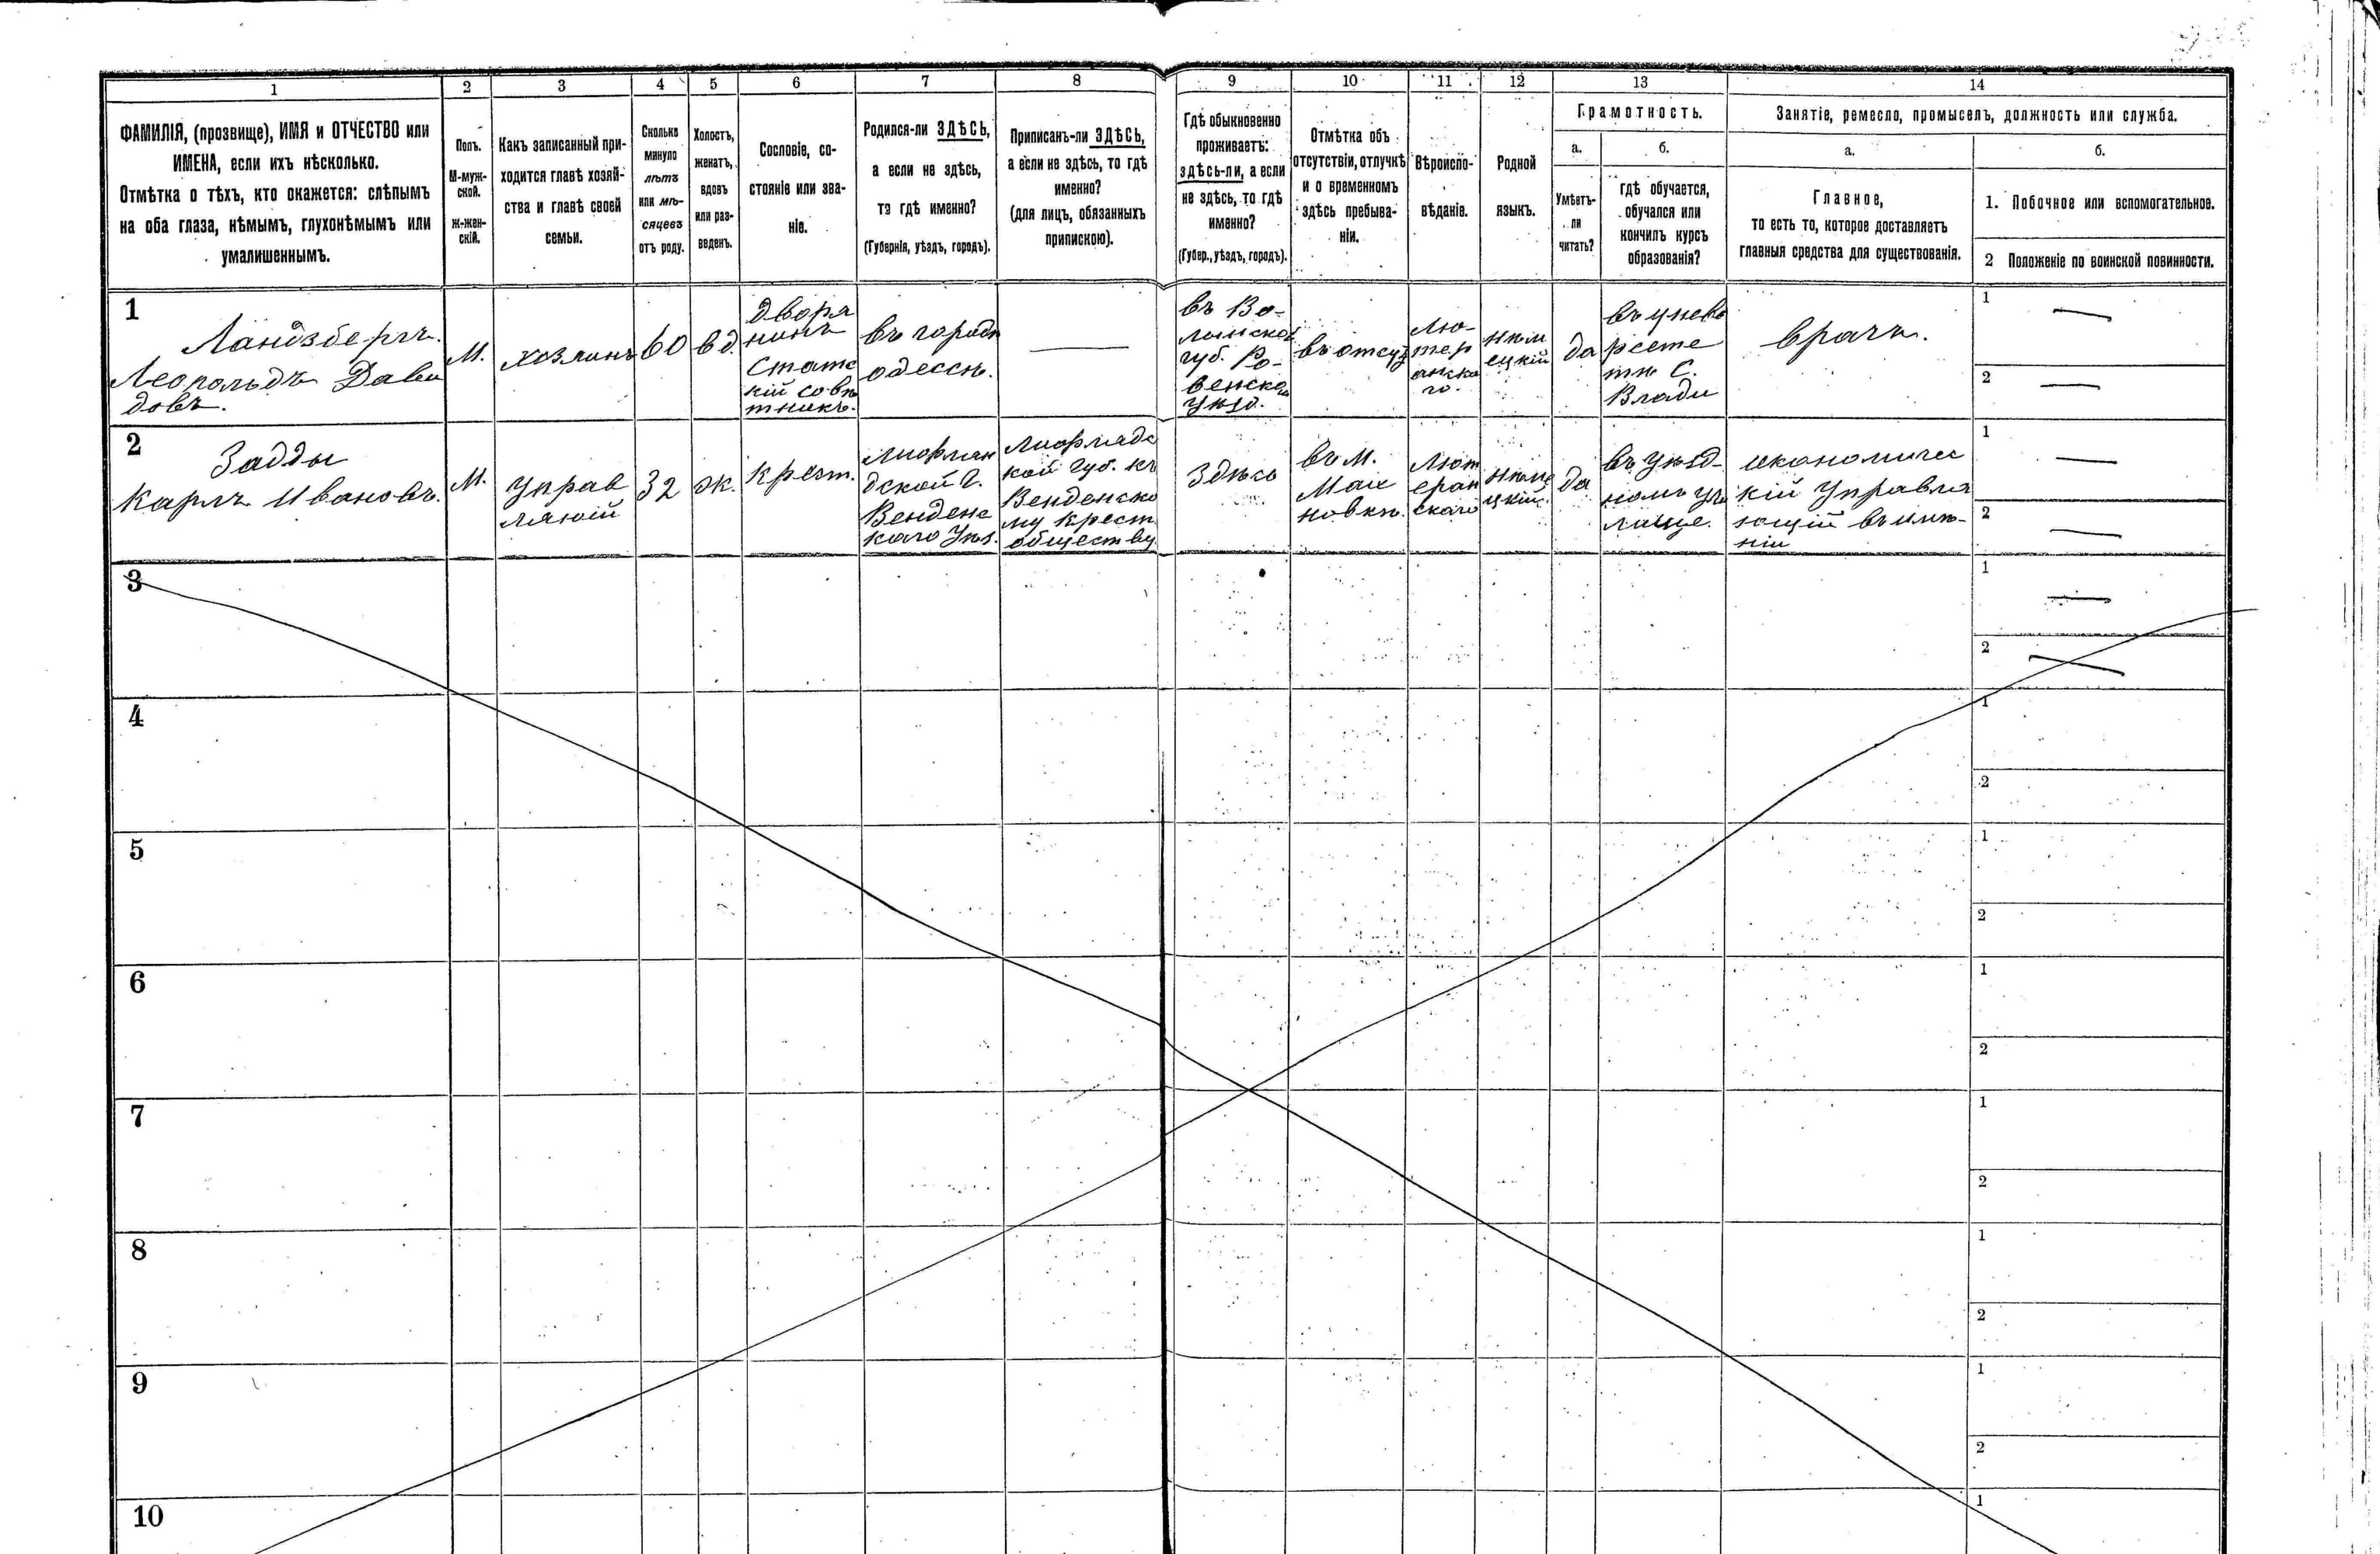 1 2 3 4 5 6 7 8 9 10 11 12 13 14
ФАМИЛІЯ, (прозвище), ИМЯ и ОТЧЕСТВО или
ИМЕНА, если ихъ нѣсколько.
Отмѣтка о тѣхъ, кто окажется: слѣпымъ
на оба глаза, нѣмымъ, глухонѣмымъ или
умалишеннымъ.
Полъ.
М-муж-
ской.
ж-жен-
скій.
Какъ записанный при-
ходится главѣ хозяй-
ства и главѣ своей
семьи.
Сколько
минуло
лѣтъ
или мѣ-
сяцевъ
отъ роду.
Холостъ,
женатъ,
вдовъ
или раз-
веденъ.
Сословіе, со-
стояніе или зва-
ніе.
Родился-ли ЗДѢСЬ,
а если не здѣсь,
то гдѣ именно?
(Губернія, уѣздъ, городъ).
Приписанъ-ли ЗДѢСЬ,
а если не здѣсь, то гдѣ
именно?
(для лицъ, обязанныхъ
припискою).
Гдѣ обыкновенно
проживаетъ:
здѣсь-ли, а если
не здѣсь, то гдѣ
именно?
(Губер., уѣздъ, городъ).
Отмѣтка объ
отсутствіи, отлучкѣ
и о временномъ
здѣсь пребыва-
ніи.
Вѣроиспо-
вѣданіе.
Родной
языкъ.
Грамотность.
а.
Умѣетъ-
ли
читать?
б.
гдѣ обучается,
обучался или
кончилъ курсъ
образованія?
Занятіе, ремесло, промыселъ, должность или служба.
а.
Главное,
то есть то, которое доставляетъ
главныя средства для существованія.
б.
1. Побочное или вспомогательное.
2 Положеніе по воинской повинности.
1
Ландзбергъ.
Леопольдъ Дави
довъ.
М.
хозяинъ
60
вд.
дворя
нинъ
Статс
кій совѣ
тникъ.
въ городѣ
одессѣ.
въ Во-
лынской
губ. Ро-
венскаго
уѣзд.
въ отсут
лю-
тер
анска
го.
нѣм
ецкій
да
въ униве
рсете
тѣ С.
Влади
врачъ.
1
2
2
Задды
Карлъ Ивановъ.
М.
Управ
ляюій
32
ж.
крест.
Лифлян
дской г.
Венденс
каго Уѣз.
Лифлядс
кой губ. къ
Венденско
му крест
обществу
Здѣсь
въ м.
Мах
новкѣ.
Лют
еран
скаго
нѣме
цкій.
да
въ уѣзд-
номъ уч
лище.
икономичес
кій Управля
ющій въ имѣ-
ніи
1
2
3
1
2
4
1
2
5
1
2
6
1
2
7
1
2
8
1
2
9
1
2
10
1